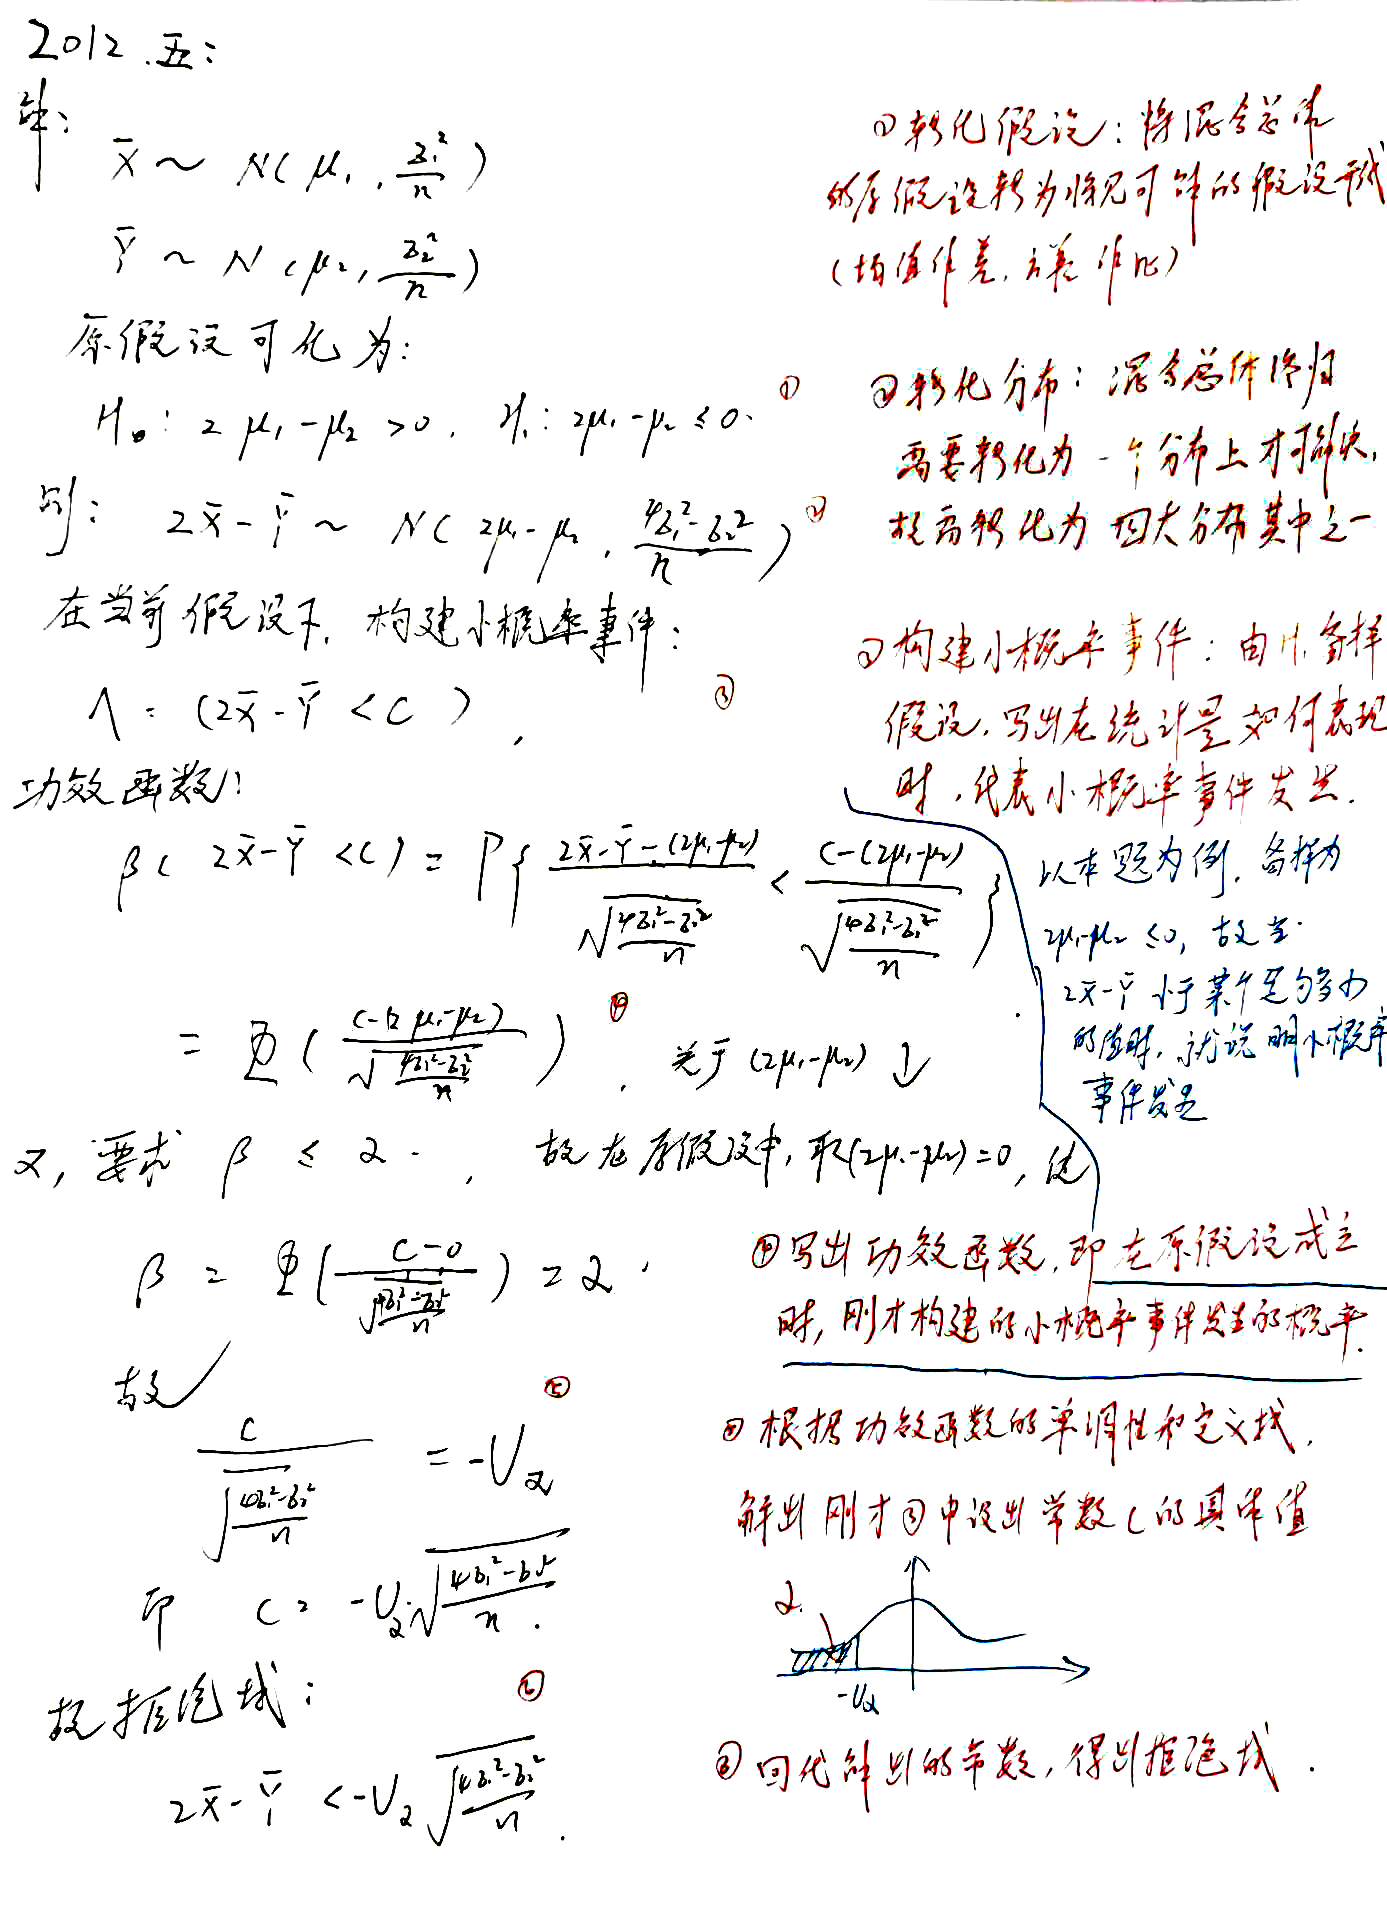 2012.五:
解:
X̄ ~ N(μ₁, σ₁²/n)
Ȳ ~ N(μ₂, σ₂²/n)
原假设可化为:
H₀: 2μ₁-μ₂>0, H₁: 2μ₁-μ₂≤0. ①
则: 2X̄-Ȳ ~ N(2μ₁-μ₂, (4σ₁²-σ₂²)/n) ②
在当前假设下, 构建小概率事件:
Λ = (2X̄-Ȳ < C), ③
功效函数:
β(2X̄-Ȳ<C) = P{ (2X̄-Ȳ-(2μ₁-μ₂))/√((4σ₁²-σ₂²)/n) < (C-(2μ₁-μ₂))/√((4σ₁²-σ₂²)/n) }
= Φ( (C-(2μ₁-μ₂))/√((4σ₁²-σ₂²)/n) ) ④, 关于(2μ₁-μ₂)↓
又, 要求 β ≤ α, 故在原假设中, 取(2μ₁-μ₂)=0, 使
β = Φ( (C-0)/√((4σ₁²-σ₂²)/n) ) = α.
故 ⑤
C/√((4σ₁²-σ₂²)/n) = -U_α
即 C = -U_α·√((4σ₁²-σ₂²)/n).
故拒绝域: ⑥
2X̄-Ȳ < -U_α √((4σ₁²-σ₂²)/n).
①转化假设: 将混合总体
的原假设转为常见可解的假设形式
(均值作差, 方差作比)
②转化分布: 混合总体终归
需要转化为一个分布上才可解决,
故需转化为四大分布其中之一
③构建小概率事件: 由H₁备择
假设, 写出在统计量如何表现
时, 代表小概率事件发生.
以本题为例, 备择为
2μ₁-μ₂≤0, 故当
2X̄-Ȳ小于某个足够小
的值时, 就说明小概率
事件发生
④写出功效函数, 即在原假设成立
时, 刚才构建的小概率事件发生的概率.
⑤根据功效函数的单调性和定义域,
解出刚才③中设出常数C的具体值
α
-Uα
⑥回代解出的常数, 得出拒绝域.